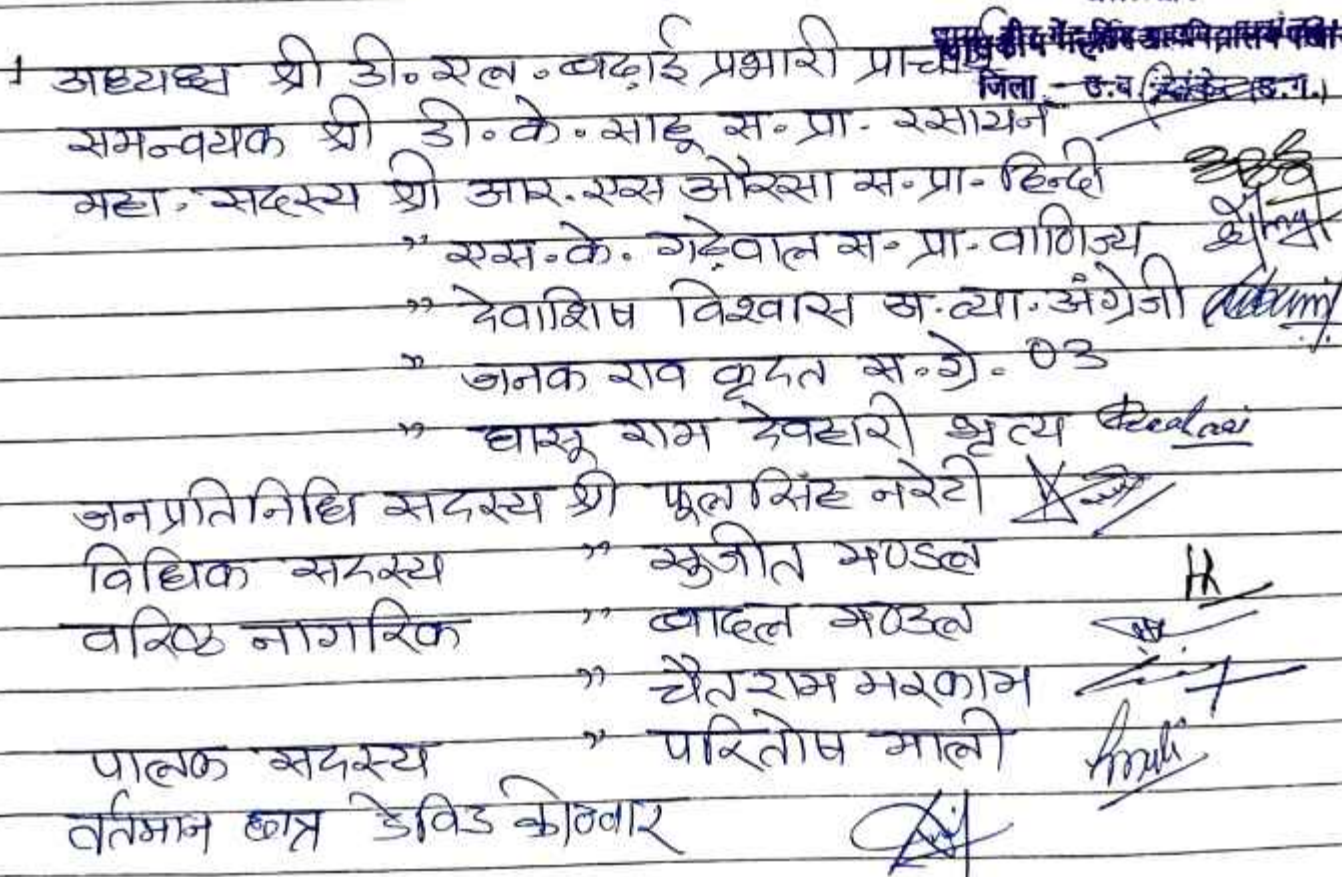 1 अध्यक्ष श्री डी. एल. बढ़ाई प्रभारी प्राचार्य
जिला - उ.ब. कांकेर (छ.ग.)
समन्वयक श्री डी. के. साहू स. प्रा. रसायन
महा. सदस्य श्री आर. एस औरसा स. प्रा. हिन्दी
" एस. के. गढ़ेवाल स. प्रा. वाणिज्य
" देवाशिष विश्वास अ. व्या. अंग्रेजी
" जनक राव कृदत स. ग्रे. 03
" घासू राम देवहारी भृत्य
जनप्रतिनिधि सदस्य श्री फूलसिंह नरेटी
विधिक सदस्य " सुजीत मण्डल
वरिष्ठ नागरिक " बादल मण्डल
" चैतराम मरकाम
पालक सदस्य " परितोष माली
वर्तमान छात्र डेविड कोठवार